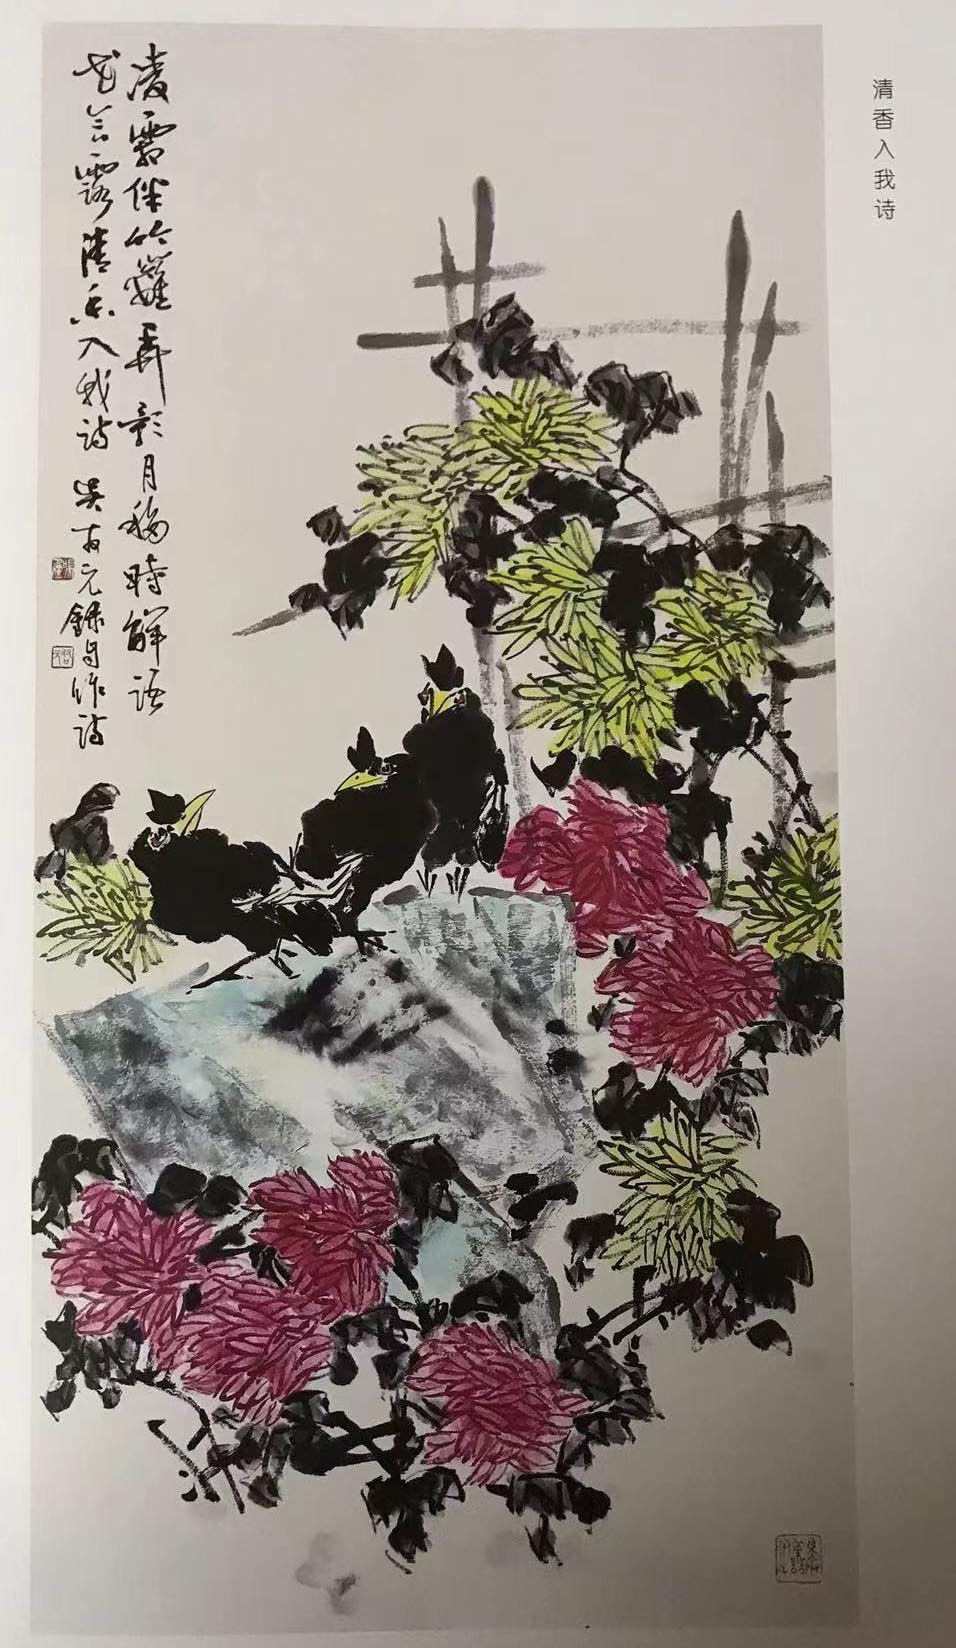 清香入我诗
凌霜伴竹籬弄影月移時解语
花含露清香入我诗 元録自作诗